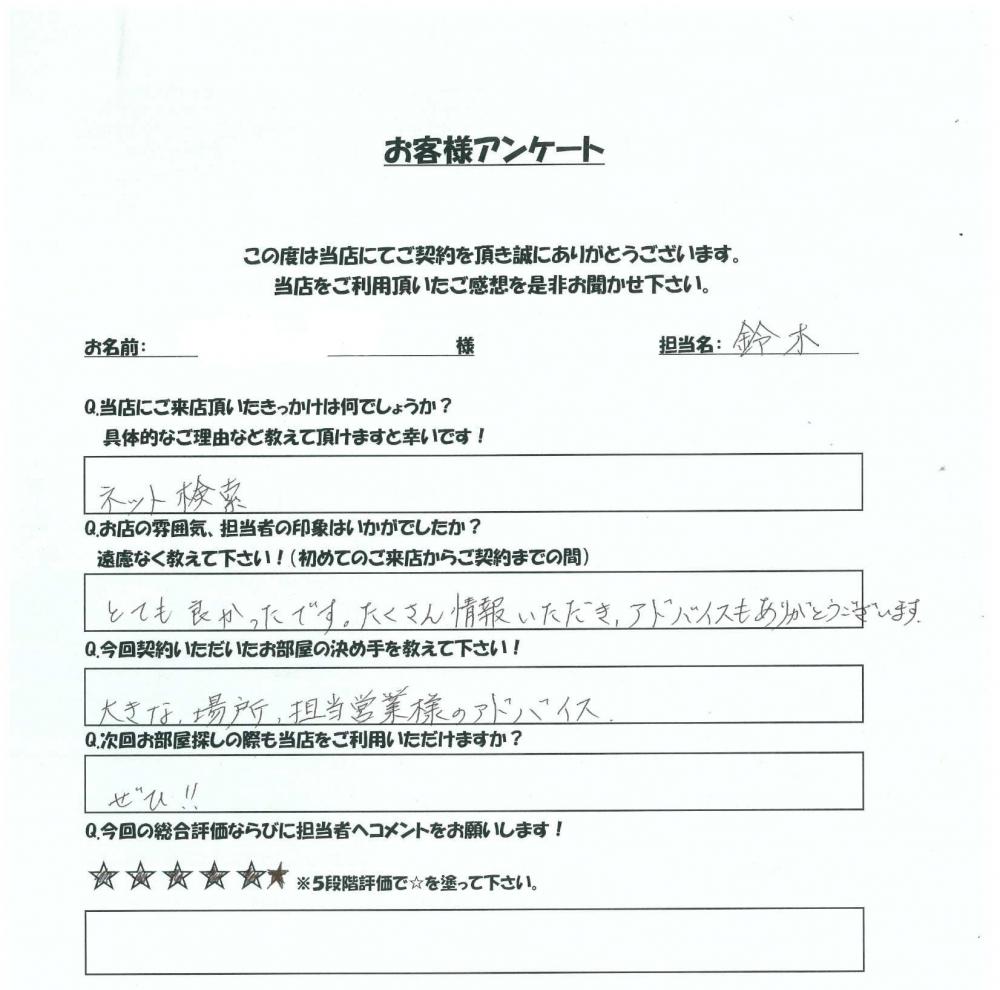 お客様アンケート
この度は当店にてご契約を頂き誠にありがとうございます。
当店をご利用頂いたご感想を是非お聞かせ下さい。
お名前: 様 担当名: 鈴木
Q.当店にご来店頂いたきっかけは何でしょうか？
具体的なご理由など教えて頂けますと幸いです！
ネット検索
Q.お店の雰囲気、担当者の印象はいかがでしたか？
遠慮なく教えて下さい！(初めてのご来店からご契約までの間)
とても良かったです。たくさん情報いただき、アドバイスもありがとうございます.
Q.今回契約いただいたお部屋の決め手を教えて下さい！
大きな、場所、担当営業様のアドバイス.
Q.次回お部屋探しの際も当店をご利用いただけますか？
ぜひ!!
Q.今回の総合評価ならびに担当者へコメントをお願いします！
☆☆☆☆☆★ ※5段階評価で☆を塗って下さい。